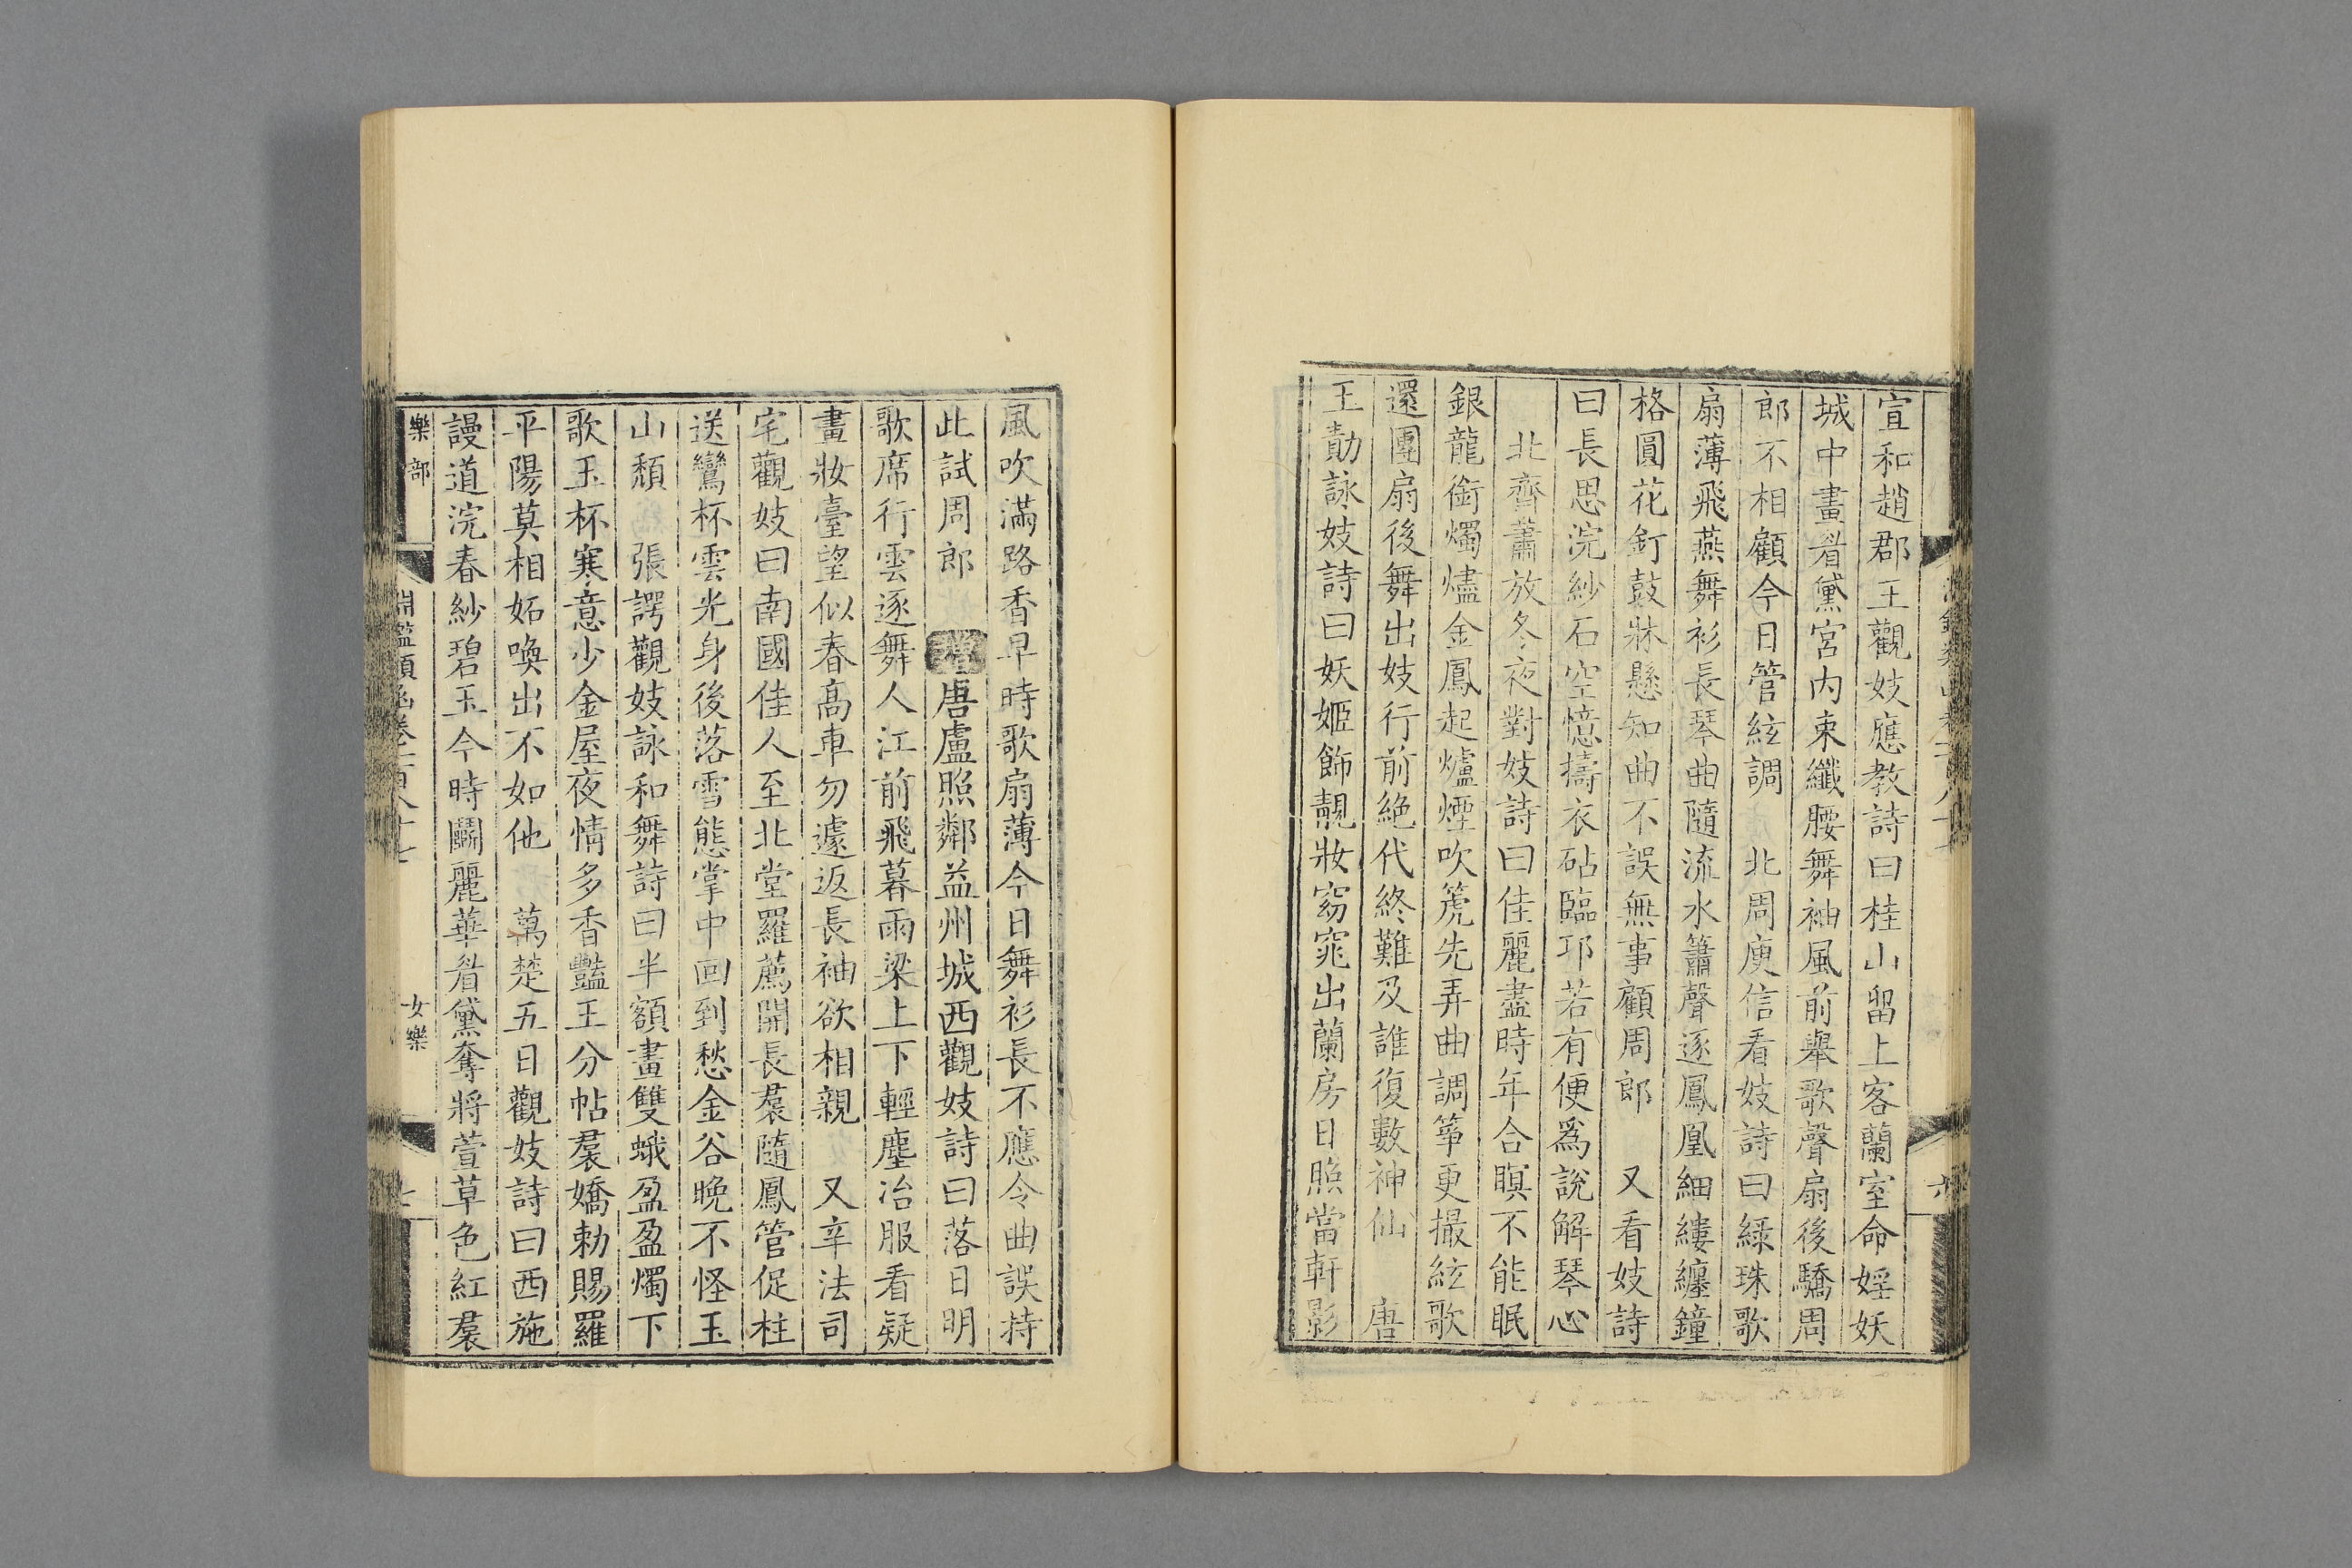 宣和趙郡王觀妓應教詩曰桂山留上客蘭室命婬妖
城中畫眉黛宮內束纖腰舞袖風前舉歌聲扇後驕周
郎不相顧今日管絃調 北周庾信看妓詩曰綠珠歌
扇薄飛燕舞衫長琴曲隨流水簫聲逐鳳凰細縷纏鐘
格圓花釘鼓牀懸知曲不誤無事顧周郎 又看妓詩
曰長思浣紗石空憶擣衣砧臨邛若有便爲說解琴心
北齊蕭放冬夜對妓詩曰佳麗盡時年合瞑不能眠
銀龍銜燭燼金鳳起爐煙吹篪先弄曲調箏更撮絃歌
還團扇後舞出妓行前絶代終難及誰復數神仙 唐
王勣詠妓詩曰妖姬飾靚妝窈窕出蘭房日照當軒影
風吹滿路香早時歌扇薄今日舞衫長不應令曲誤持
此試周郎 唐盧照鄰益州城西觀妓詩曰落日明
歌席行雲逐舞人江前飛暮雨梁上下輕塵冶服看疑
畫妝臺望似春高車勿遽返長袖欲相親 又辛法司
宅觀妓曰南國佳人至北堂羅薦開長裠隨鳳管促柱
送鸞杯雲光身後落雪態掌中回到愁金谷晚不怪玉
山頹 張諤觀妓詠和舞詩曰半額畫雙蛾盈盈燭下
歌玉杯寒意少金屋夜情多香豔王分帖裠嬌勅賜羅
平陽莫相妬喚出不如他 萬楚五日觀妓詩曰西施
謾道浣春紗碧玉今時鬭麗華眉黛奪將萱草色紅裠
樂部
淵鑑類函卷一百八十七
女樂
七